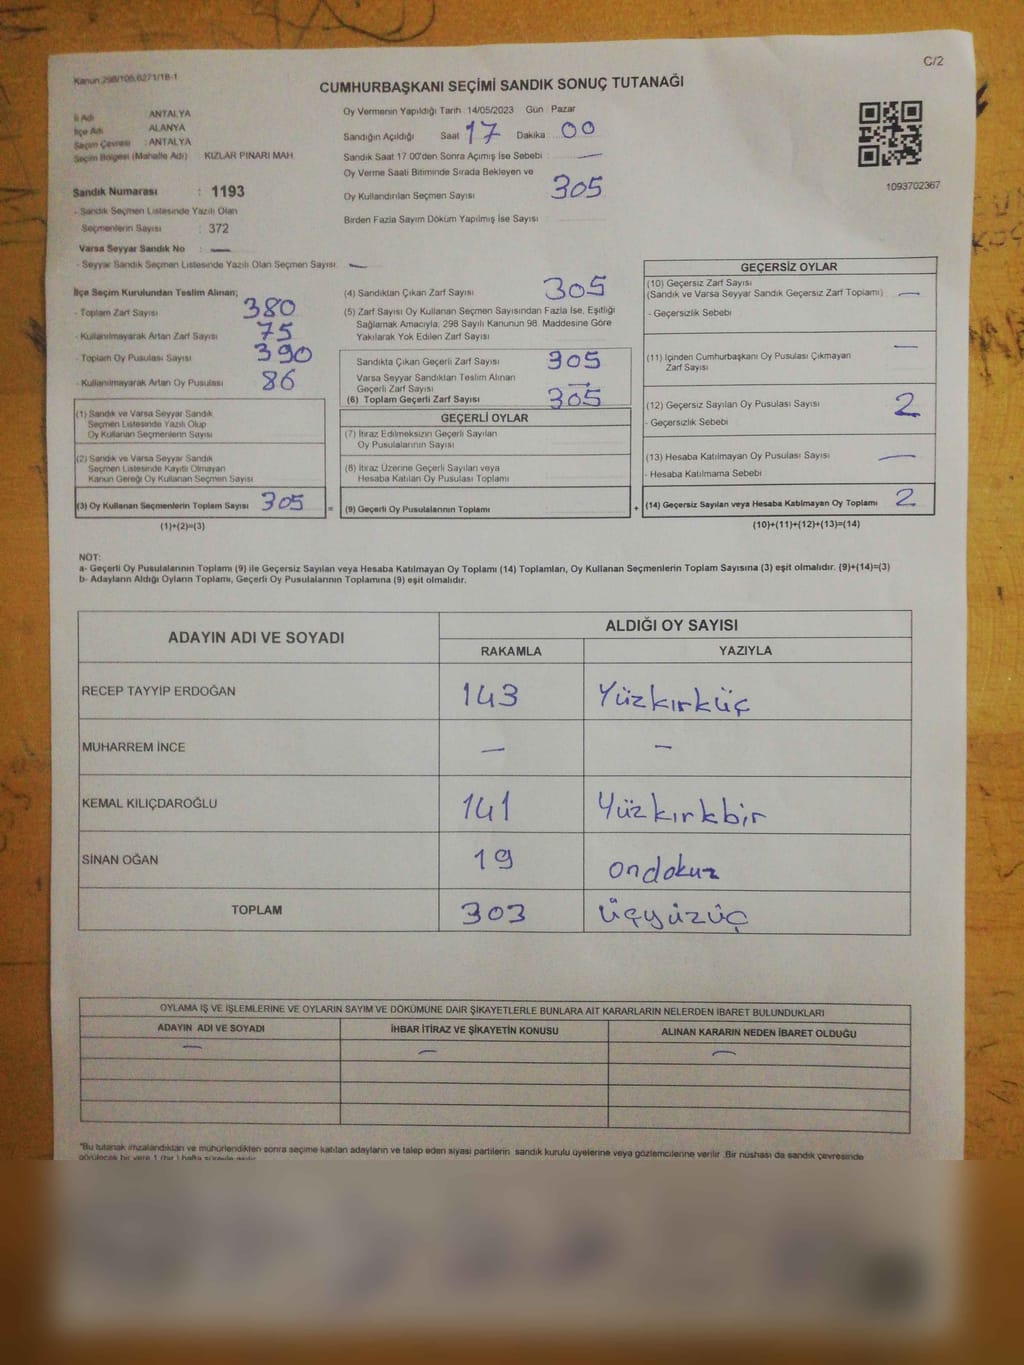 Kanun 298/105,6271/18-1
C/2
CUMHURBAŞKANI SEÇİMİ SANDIK SONUÇ TUTANAĞI
İli Adı : ANTALYA
İlçe Adı : ALANYA
Seçim Çevresi : ANTALYA
Seçim Bölgesi (Mahalle Adı) KIZLAR PINARI MAH.
Sandık Numarası : 1193
- Sandık Seçmen Listesinde Yazılı Olan
Seçmenlerin Sayısı : 372
Varsa Seyyar Sandık No : —
- Seyyar Sandık Seçmen Listesinde Yazılı Olan Seçmen Sayısı: —
Oy Vermenin Yapıldığı Tarih : 14/05/2023 Gün : Pazar
Sandığın Açıldığı Saat 17 Dakika : 00
Sandık Saat 17.00'den Sonra Açılmış İse Sebebi : —
Oy Verme Saati Bitiminde Sırada Bekleyen ve
Oy Kullandırılan Seçmen Sayısı 305
Birden Fazla Sayım Döküm Yapılmış İse Sayısı
1093702367
İlçe Seçim Kurulundan Teslim Alınan;
- Toplam Zarf Sayısı : 380
- Kullanılmayarak Artan Zarf Sayısı : 75
- Toplam Oy Pusulası Sayısı : 390
- Kullanılmayarak Artan Oy Pusulası : 86
(1) Sandık ve Varsa Seyyar Sandık
Seçmen Listesinde Yazılı Olup
Oy Kullanan Seçmenlerin Sayısı
(2) Sandık ve Varsa Seyyar Sandık
Seçmen Listesinde Kayıtlı Olmayan
Kanun Gereği Oy Kullanan Seçmen Sayısı
(3) Oy Kullanan Seçmenlerin Toplam Sayısı 305
(1)+(2)=(3)
(4) Sandıktan Çıkan Zarf Sayısı 305
(5) Zarf Sayısı Oy Kullanan Seçmen Sayısından Fazla İse, Eşitliği
Sağlamak Amacıyla, 298 Sayılı Kanunun 98. Maddesine Göre
Yakılarak Yok Edilen Zarf Sayısı
Sandıkta Çıkan Geçerli Zarf Sayısı 305
Varsa Seyyar Sandıktan Teslim Alınan
Geçerli Zarf Sayısı —
(6) Toplam Geçerli Zarf Sayısı 305
GEÇERLİ OYLAR
(7) İtiraz Edilmeksizin Geçerli Sayılan
Oy Pusulalarının Sayısı
(8) İtiraz Üzerine Geçerli Sayılan veya
Hesaba Katılan Oy Pusulası Toplamı
= (9) Geçerli Oy Pusulalarının Toplamı
GEÇERSİZ OYLAR
(10) Geçersiz Zarf Sayısı
(Sandık ve Varsa Seyyar Sandık Geçersiz Zarf Toplamı) —
- Geçersizlik Sebebi
(11) İçinden Cumhurbaşkanı Oy Pusulası Çıkmayan —
Zarf Sayısı
(12) Geçersiz Sayılan Oy Pusulası Sayısı 2
- Geçersizlik Sebebi
(13) Hesaba Katılmayan Oy Pusulası Sayısı —
- Hesaba Katılmama Sebebi
+ (14) Geçersiz Sayılan veya Hesaba Katılmayan Oy Toplamı 2
(10)+(11)+(12)+(13)=(14)
NOT:
a- Geçerli Oy Pusulalarının Toplamı (9) ile Geçersiz Sayılan veya Hesaba Katılmayan Oy Toplamı (14) Toplamları, Oy Kullanan Seçmenlerin Toplam Sayısına (3) eşit olmalıdır. (9)+(14)=(3)
b- Adayların Aldığı Oyların Toplamı, Geçerli Oy Pusulalarının Toplamına (9) eşit olmalıdır.
ADAYIN ADI VE SOYADI
ALDIĞI OY SAYISI
RAKAMLA YAZIYLA
RECEP TAYYİP ERDOĞAN 143 Yüzkırküç
MUHARREM İNCE — —
KEMAL KILIÇDAROĞLU 141 Yüzkırkbir
SİNAN OĞAN 19 ondokuz
TOPLAM 303 üçyüzüç
OYLAMA İŞ VE İŞLEMLERİNE VE OYLARIN SAYIM VE DÖKÜMÜNE DAİR ŞİKAYETLERLE BUNLARA AİT KARARLARIN NELERDEN İBARET BULUNDUKLARI
ADAYIN ADI VE SOYADI İHBAR İTİRAZ VE ŞİKAYETİN KONUSU ALINAN KARARIN NEDEN İBARET OLDUĞU
— — —
*Bu tutanak imzalandıktan ve mühürlendikten sonra seçime katılan adayların ve talep eden siyasi partilerin sandık kurulu üyelerine veya gözlemcilerine verilir .Bir nüshası da sandık çevresinde